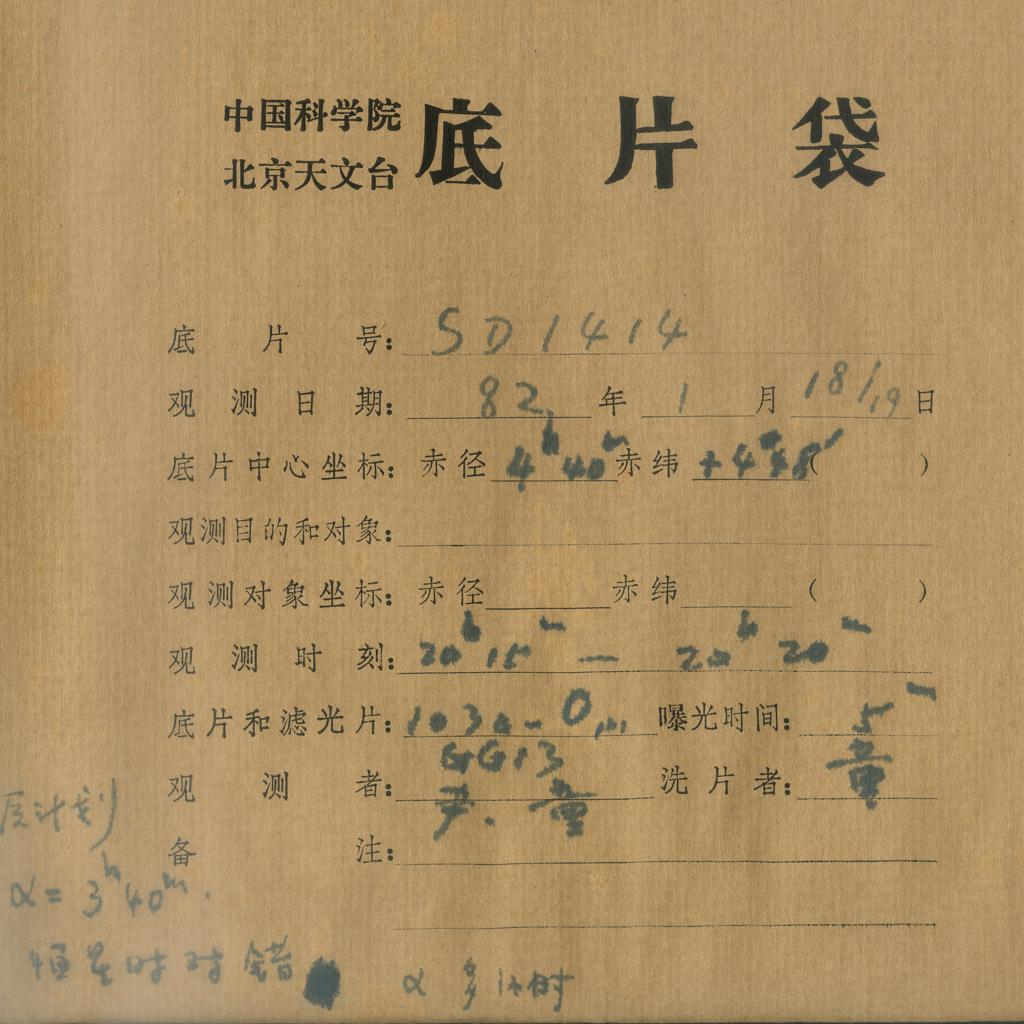 中国科学院
北京天文台 底片袋
底片号: SD1414
观测日期: 82年1月18/19日
底片中心坐标: 赤径 4h 40m 赤纬 +4°48′ ( )
观测目的和对象:
观测对象坐标: 赤径 赤纬 ( )
观测时刻: 20h 15m — 20h 20m
底片和滤光片: 103a-O GG13 曝光时间: 5m
观测者: 尹.童 洗片者: 童
备注:
原计划
α=3h40m.
恒星时对错
α多1小时